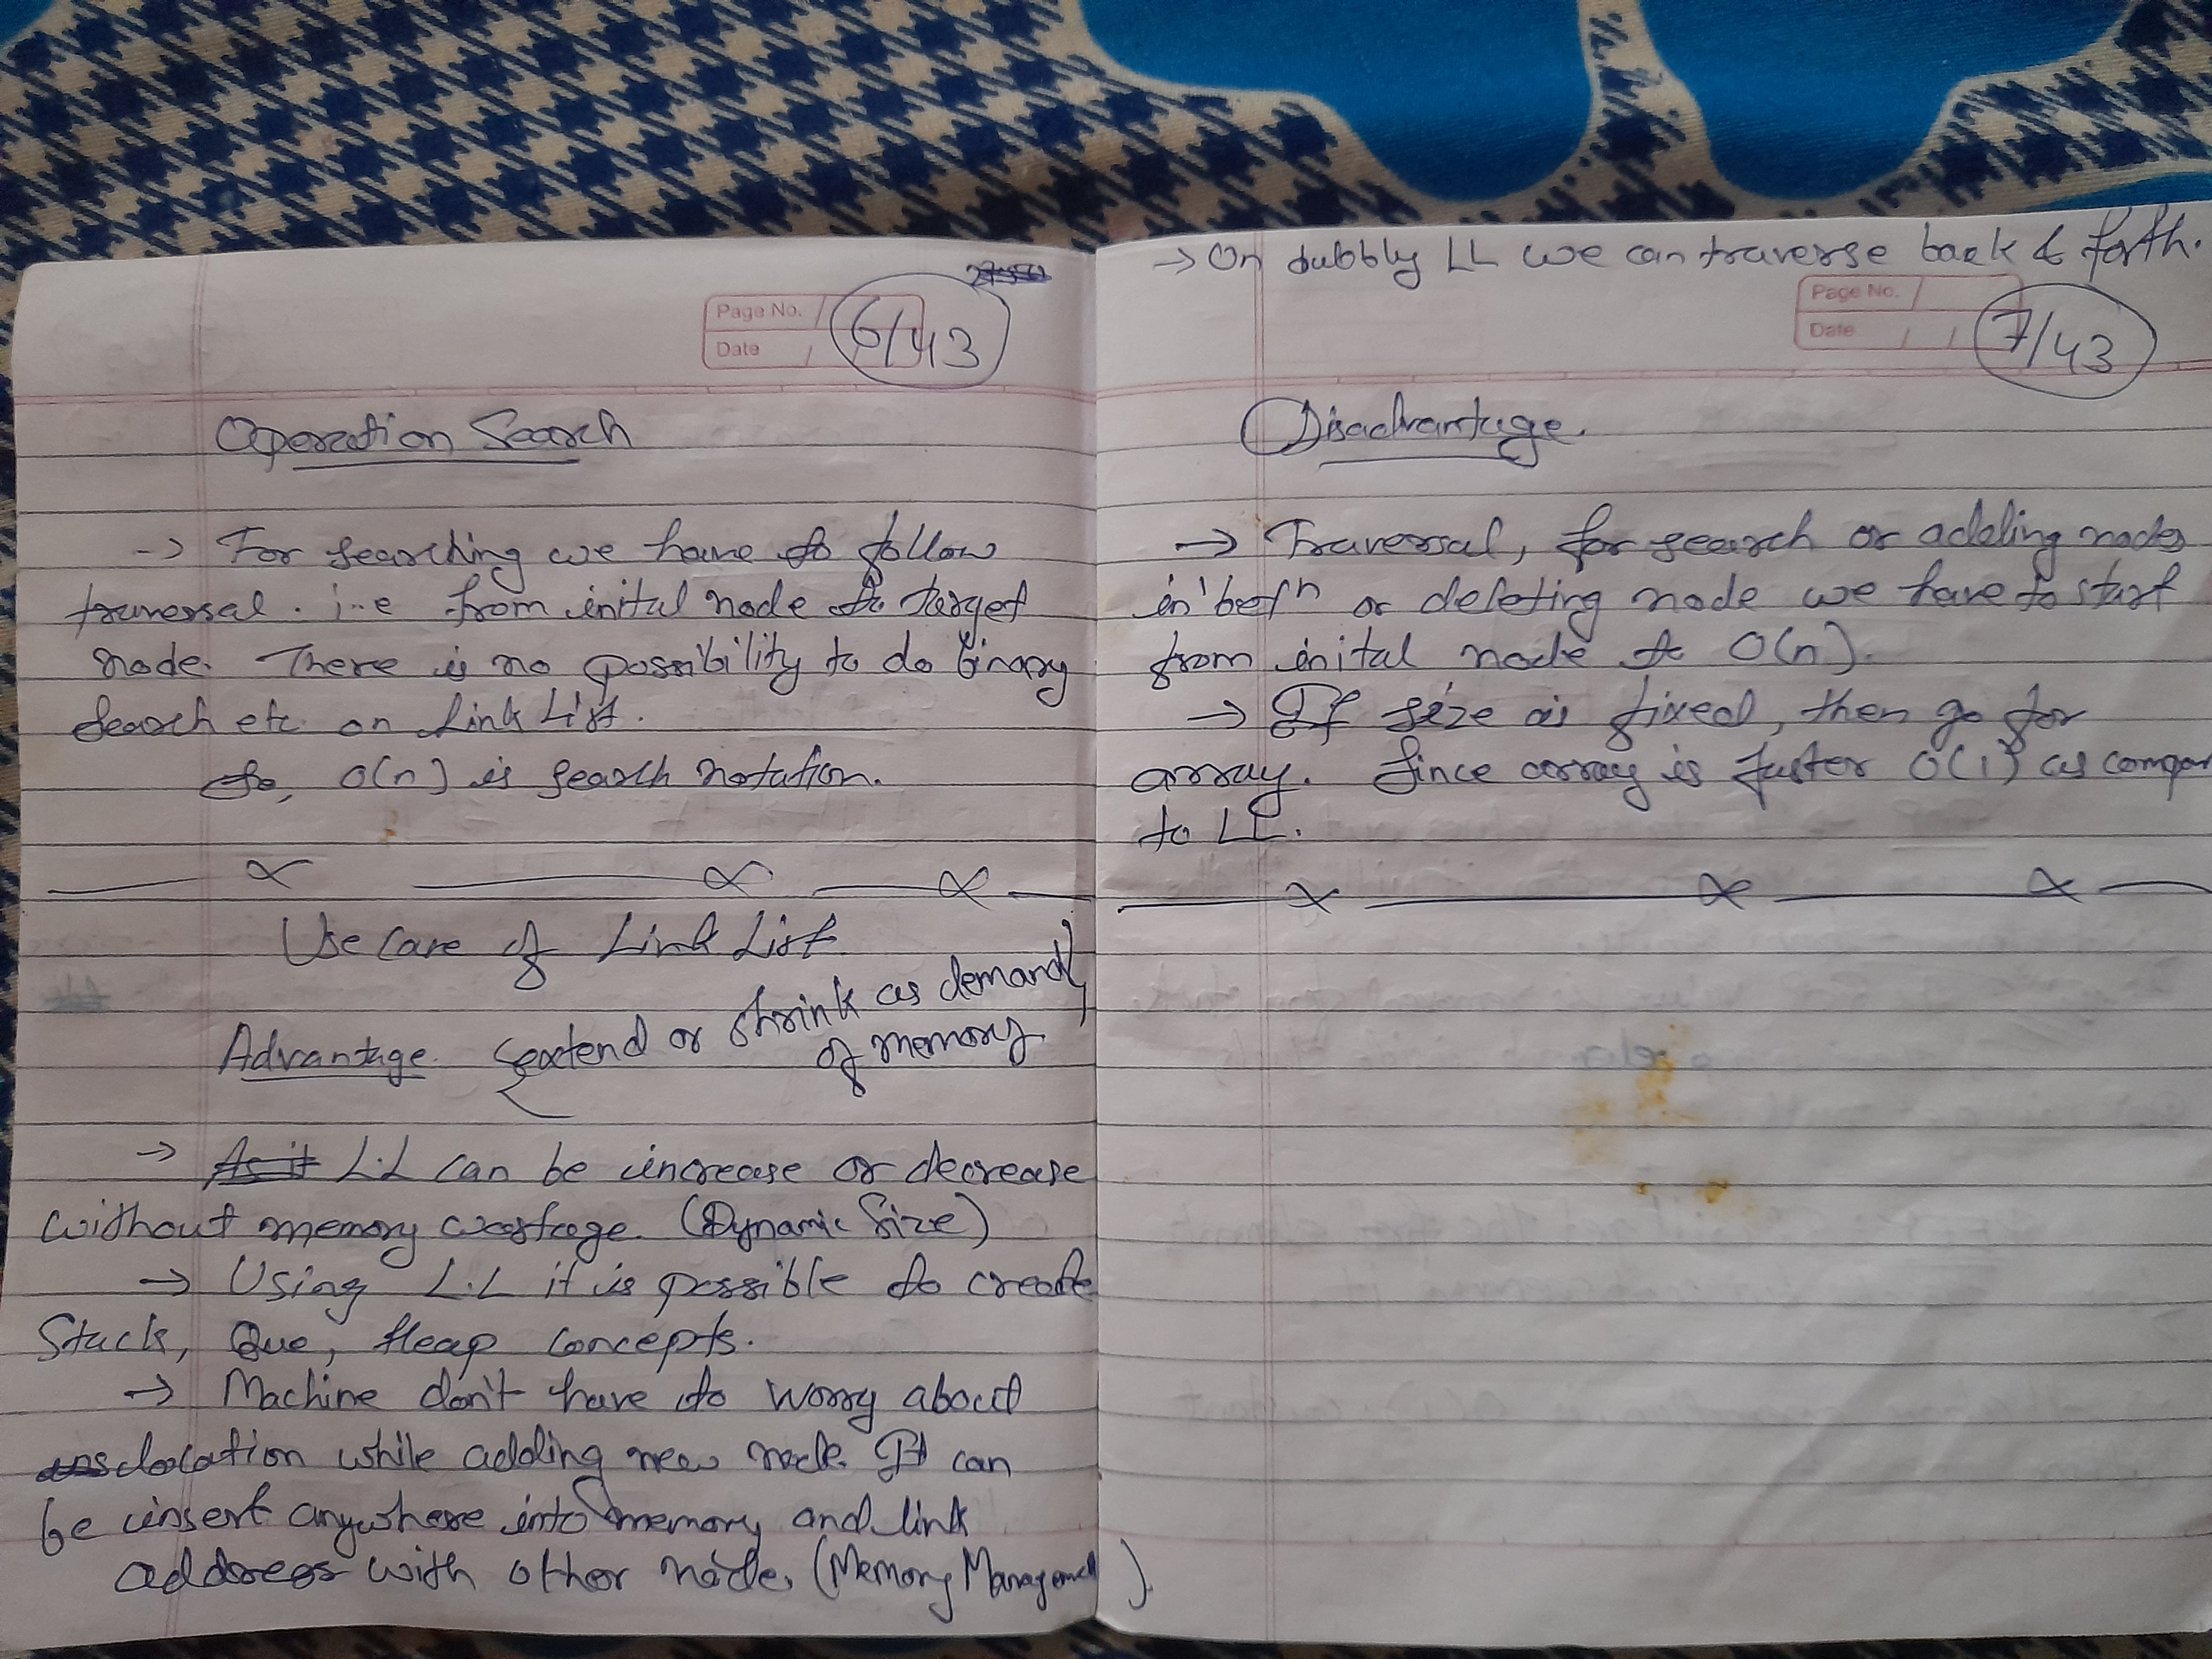 Page No.
Date / /
6/43
Operation Search
-> For searching we have to follow
traversal. i.e from inital node to target
node. There is no possibility to do binary
Search etc on Link List.
So, O(n) is search notation.
Use Case of Link List
Advantage. extend or shrink as demand
of memory
-> As it L.L can be increase or decrease
without memory wastage. (Dynamic Size)
-> Using L.L it is possible to create
Stack, Que, Heap concepts.
-> Machine don't have to worry about
location while adding new node. It can
be insert anywhere into memory and link
address with other node. (Memory Management)
-> On dubbly LL we can traverse back & forth.
Page No.
Date / /
7/43
Disadvantage.
-> Traversal, for search or adding nodes
in betn or deleting node we have to start
from inital node to O(n).
-> If size is fixed, then go for
array. Since array is faster O(1) as compar
to LL.